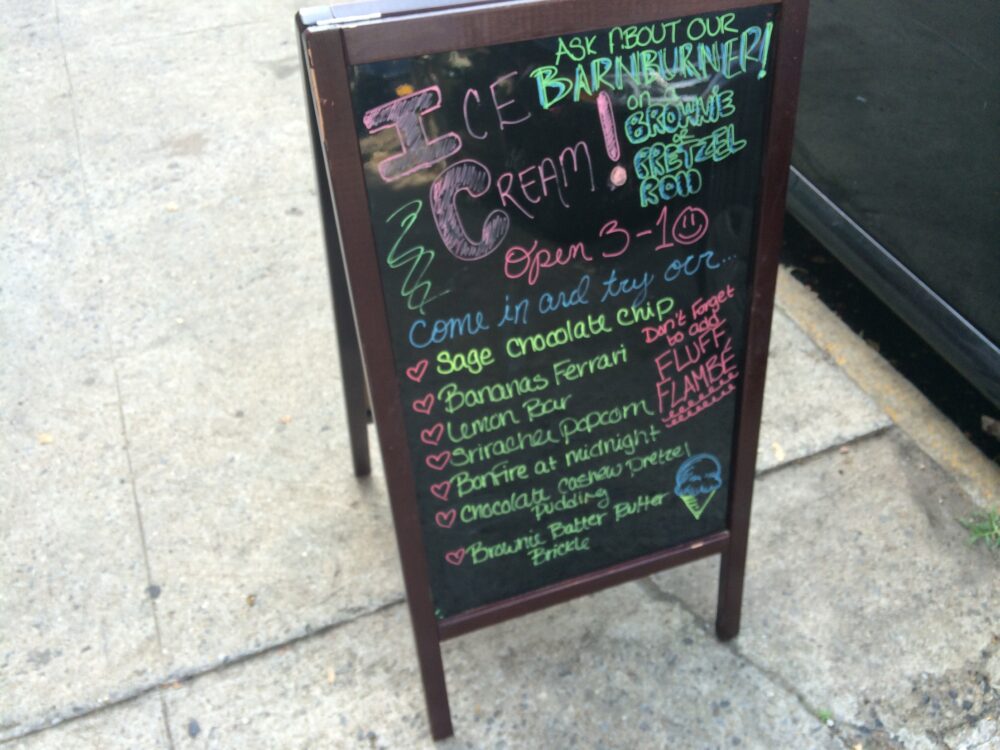 ASK ABOUT OUR
BARNBURNER!
on a
BROWNIE
or
PRETZEL
ROll
ICE
CREAM!
Open 3-10
come in and try our...
Sage chocolate chip
Bananas Ferrari
Lemon Bar
Sriracha popcorn
Bonfire at midnight
Chocolate cashew pretzel
Pudding
Brownie Batter Butter
Brickle
Don't Forget
to add
FLUFF
FLAMBÉ